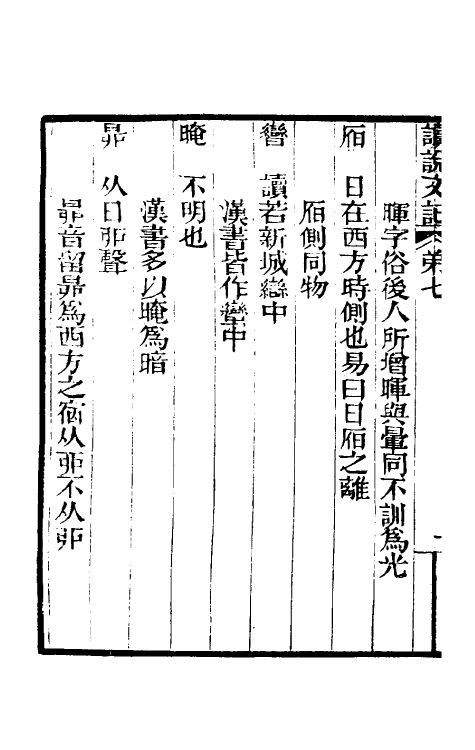 讀說文記 第七 一
暉字俗後人所增暉與暈同不訓爲光
厢 日在西方時側也易曰日厢之離
厢側同物
曫 讀若新城䜌中
漢書皆作蠻中
晻 不明也
漢書多以晻爲暗
昴 从日丣聲
昴音留昴爲西方之宿从丣不从丣